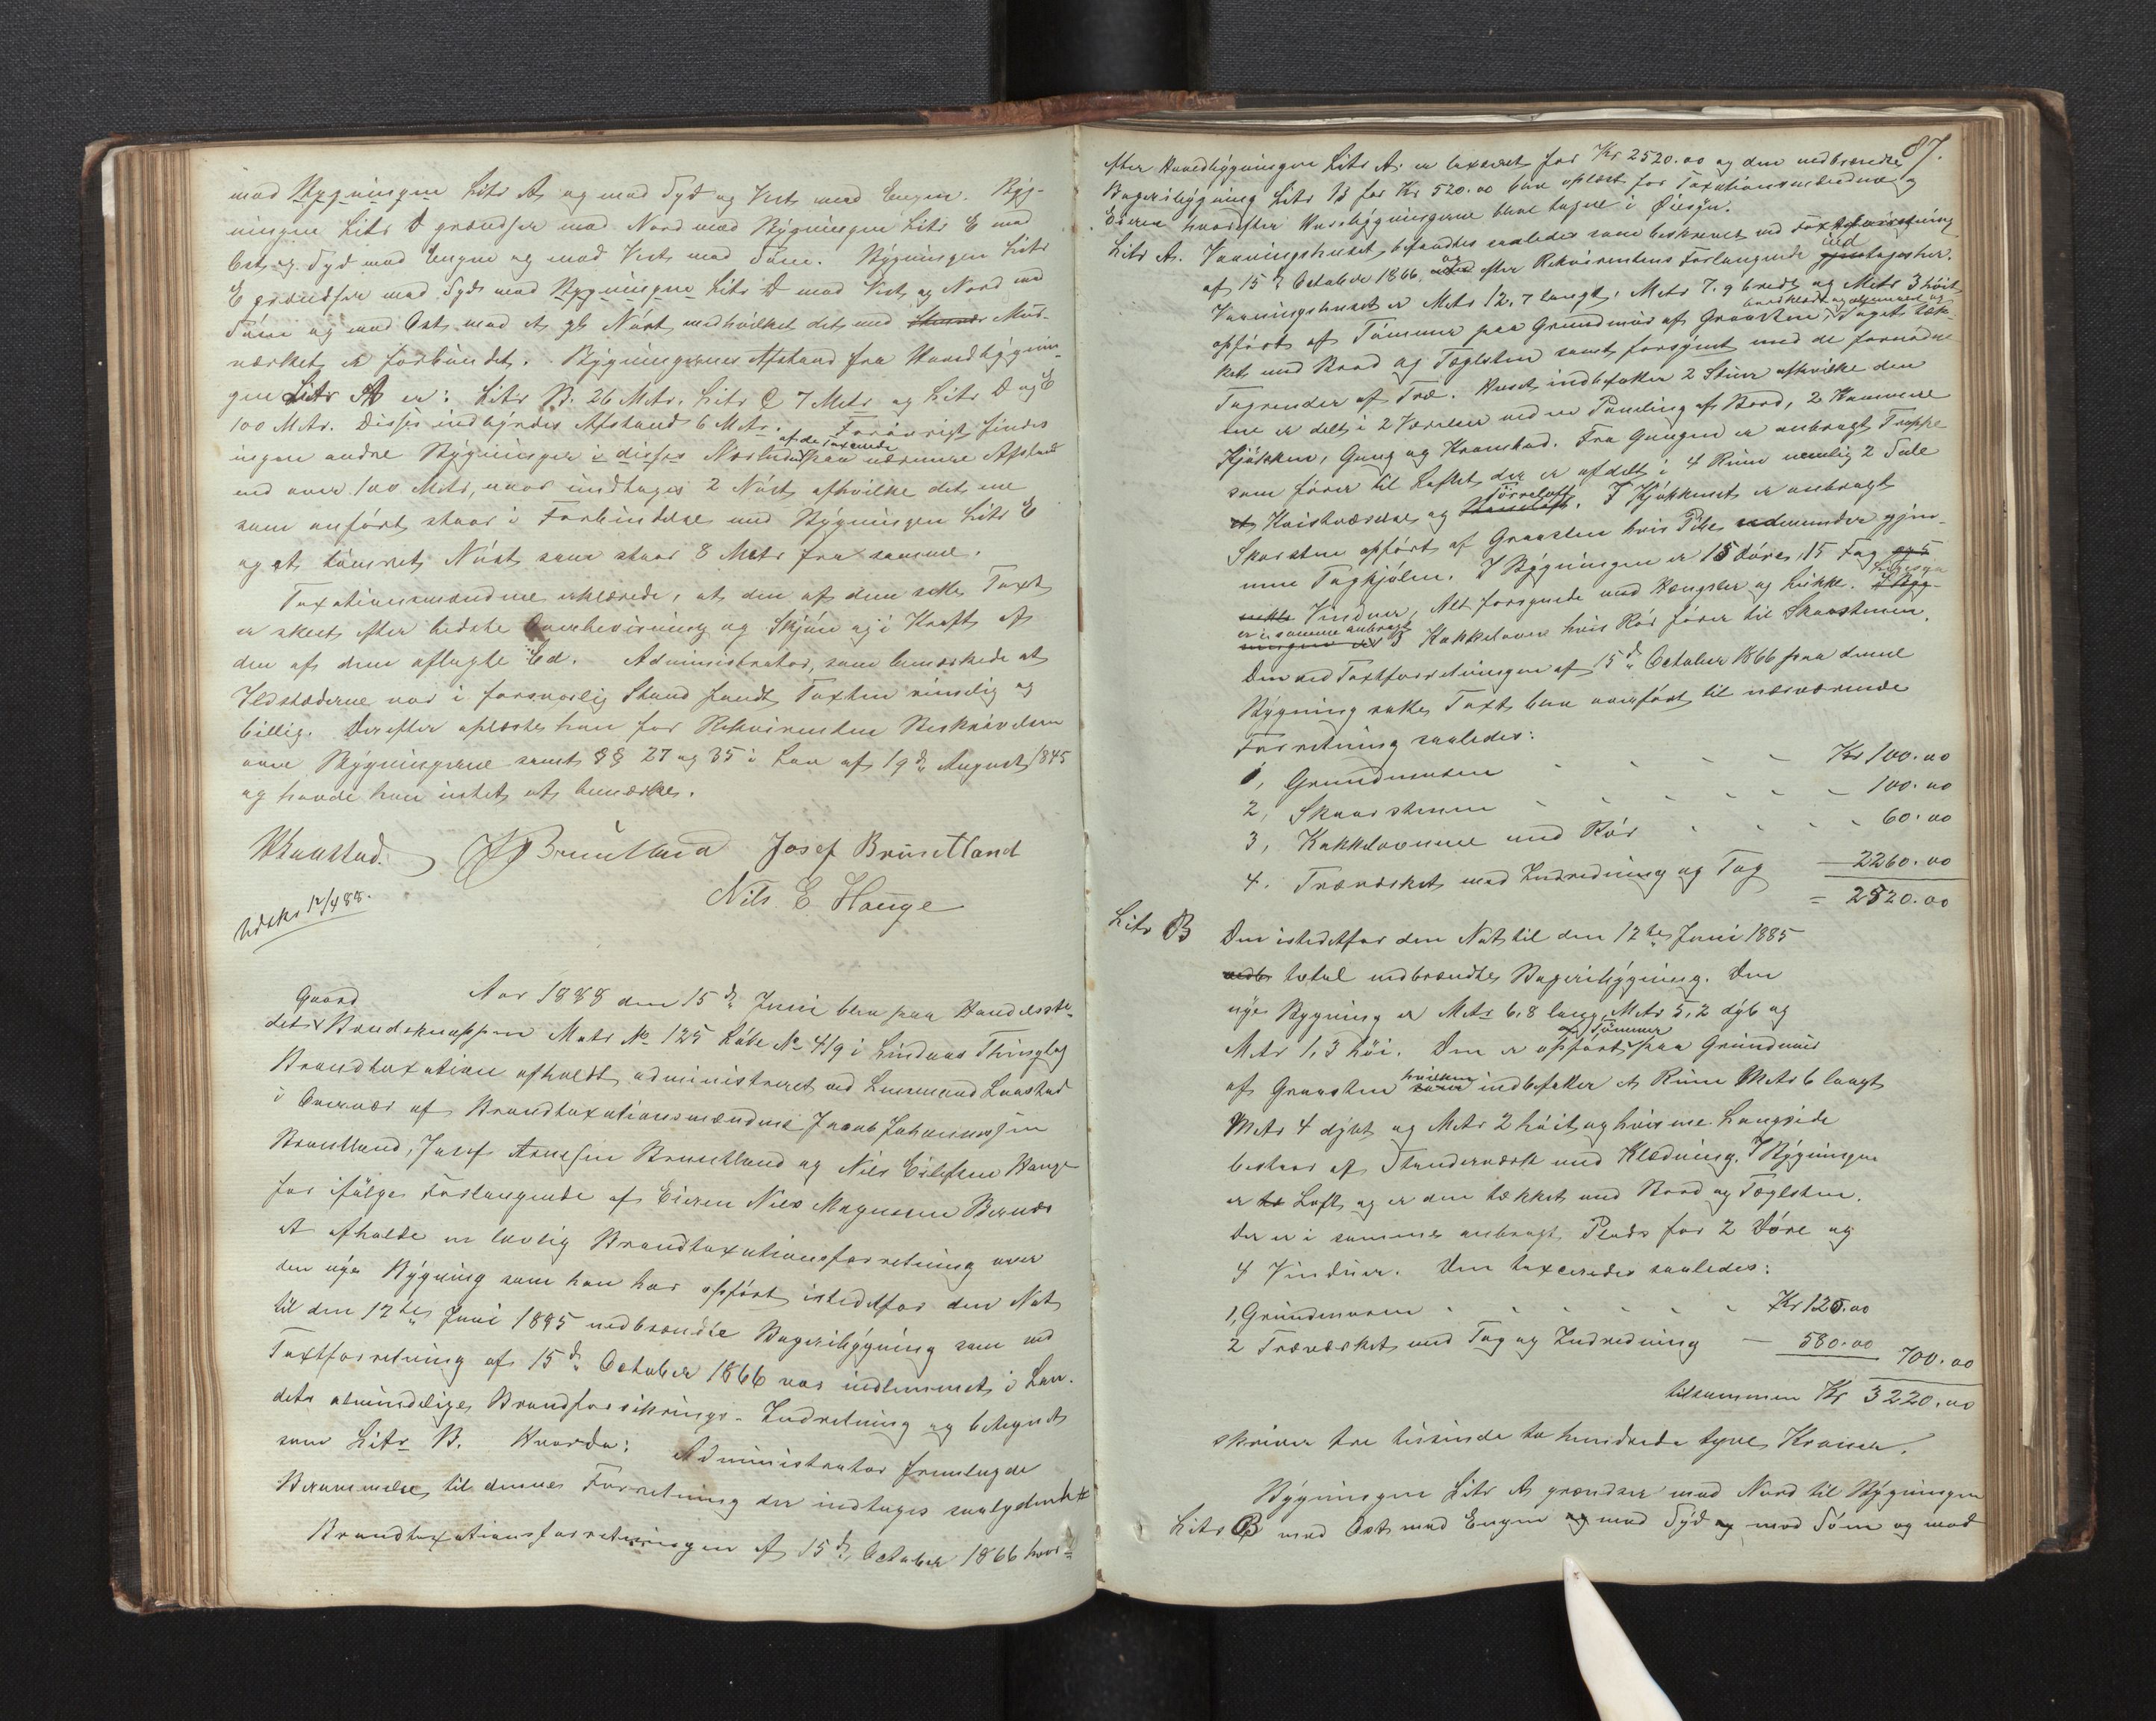 mod Bygningen Litr A og mod Syd og Vest med Engen. Byg-
ningen Litr D grændser mod Nord med Bygningen Litr E mod
Ost og Syd med Engen og mod Vest med Søen. Bygningen Litr
E grændser mod Syd med Bygningen Litr D mod Vest og Nord med
Søen og mod Ost med et gl. Nøst, medhvilket det med Mur-
værket er forbundet. Bygningernes Afstand fra Hovedbygnin-
gen Litr A er: Litr B. 26 Metr. Litr C 7 Metr og Litr D og E
100 Metr. Disses indbyrdes Afstand 6 Metr. Forøvrigt findes
ingen andre Bygninger i disses Nærhed paa nærmere Afstand
end over 100 Metr, naar undtages 2 Nøst, afhvilke det ene
som anført staar i Forbindelse med Bygningen Litr E
og et tømret Nøst som staar 8 Metr fra samme.
Taxationsmændene erklærede, at den af dem satte Taxt
er skeet efter bedste Overbevisning og Skjøn og i Kraft af
den af dem aflagte Ed. Administrator, som bemærkede at
Ildstederne var i forsvarlig Stand fandt Taxten rimelig og
billig. Derefter oplæstes han for Rekvirenten Beskrivelsen
over Bygningerne samt §§ 27 og 35 i Lov af 19de August 1845
og havde han intet at bemærke.
Josef Brunetland
Nils E. Hauge
Udskr 17/4 88.
Aar 1888 den 15de Juni blev paa Handelsste-
Gaard
det Bondeknappen Matr No 125 Løbe No 419 i Lindaas Thinglag
Brandtaxation afholdt administreret ved Lensmand Laastad
i Overvær af Brandtaxationsmændene Jacob Johannessen
Brunetland, Josef Arnesen Brunetland og Nils Eilefsen Hauge
for ifølge Forlangende af Eieren Niels Magnesen Bernæs
at afholde en lovlig Brandtaxationsforretning over
den nye Bygning som han har opført istedetfor den Nat
til den 17de Juni 1885 nedbrændte Bageribygning som ved
Taxtforretning af 15de October 1866 var indlemmet i Lan-
dets almindelige Brandforsikrings-Indretning og betegnet
som Litr B. Hvorda: Administrator fremlagde
Berammelse til denne Forretning der indtages saalydende #
Brandtaxationsforretningen af 15de October 1866 hvor-
87.
efter Hovedbygningen Litr A. er taxeret for Kr 2520.00 og den nedbrændte
Bageribygning Litr B for Kr 520.00 blev oplæst for Taxationsmændene og
Eieren hvorefter Husbygningerne blev tagne i Øiesyn.
Litr A. Vaaningshuset befandtes saaledes som beskrevet ved Taxtforretning
af 15de October 1866 og efter Rekvirentens Forlangende indtages her.
Vaaningshuset er Metr 12,7 langt, Metr 7,9 bredt og Metr 3 høit
bordklædt og
opført af Tømmer paa Grundmur af Graasten, Taget tæk-
ket med Bord og Taglsten samt forsynet med de fornødne
Tagrender af Træ. Huset indbefatter 2 Stuer afhvilke den
ene er delt i 2 Værelser ved en Paneling af Bord, 2 Kammere
Kjøkken, Gang og Krambod. Fra Gangen er anbragt Trappe
som fører til Loftet der er afdelt i 4 Rum nemlig 2 Sale
et Kvistværelse og Tørreloft. I Kjøkkenet er anbragt
Skorsten opført af Graasten hvis Pibe udmunder gjen-
nem Tagkjølen. I Bygningen er 15 Døre, 15 Fag
Vinduer, Alt forsynede med Hængsler og Lukke. Ligesaa
er i samme anbragt 3 Kakkelovne hvis Rør fører til Skorstenen.
Den ved Taxtforretningen af 15de October 1866 paa denne
Bygning satte Taxt blev overført til nærværende
Forretning saaledes:
1, Grundmuren - - - - - Kr 100.00
2, Skorstenen - - - - - - 100.00
3, Kakkelovnene med Rør - - - - 60.00
4. Træværket med Indredning og Tag — 2260.00
= 2520.00
Litr B Den istedetfor den Nat til den 17de Juni 1885
total nedbrændte Bageribygning. Den
nye Bygning er Metr 6,8 lang, Metr 5,2 dyb og
af Tømmer
Metr 1,3 høi. Den er opført paa Grundmur
af Graasten hvilken indbefatter et Rum Metr 6 langt
Metr 4 dybt og Metr 2 høit og hvis ene Langside
bestaar af Stenderværk med Klædning. I Bygningen
er Loft, og er den tækket med Bord og Taglsten.
Der er i samme anbragt Plads for 2 Døre og
4 Vinduer. Den taxeredes saaledes:
1, Grundmuren - - - - - - Kr 120.00
2 Træværket med Tag og Indredning — 580.00 700.00
tilsammen Kr 3220.00
skriver tre tusinde to hundrede tyve Kroner.
Bygningen Litr A grændser mod Nord til Bygningen
Litr B mod Ost med Engen og mod Syd og mod Søen og mod